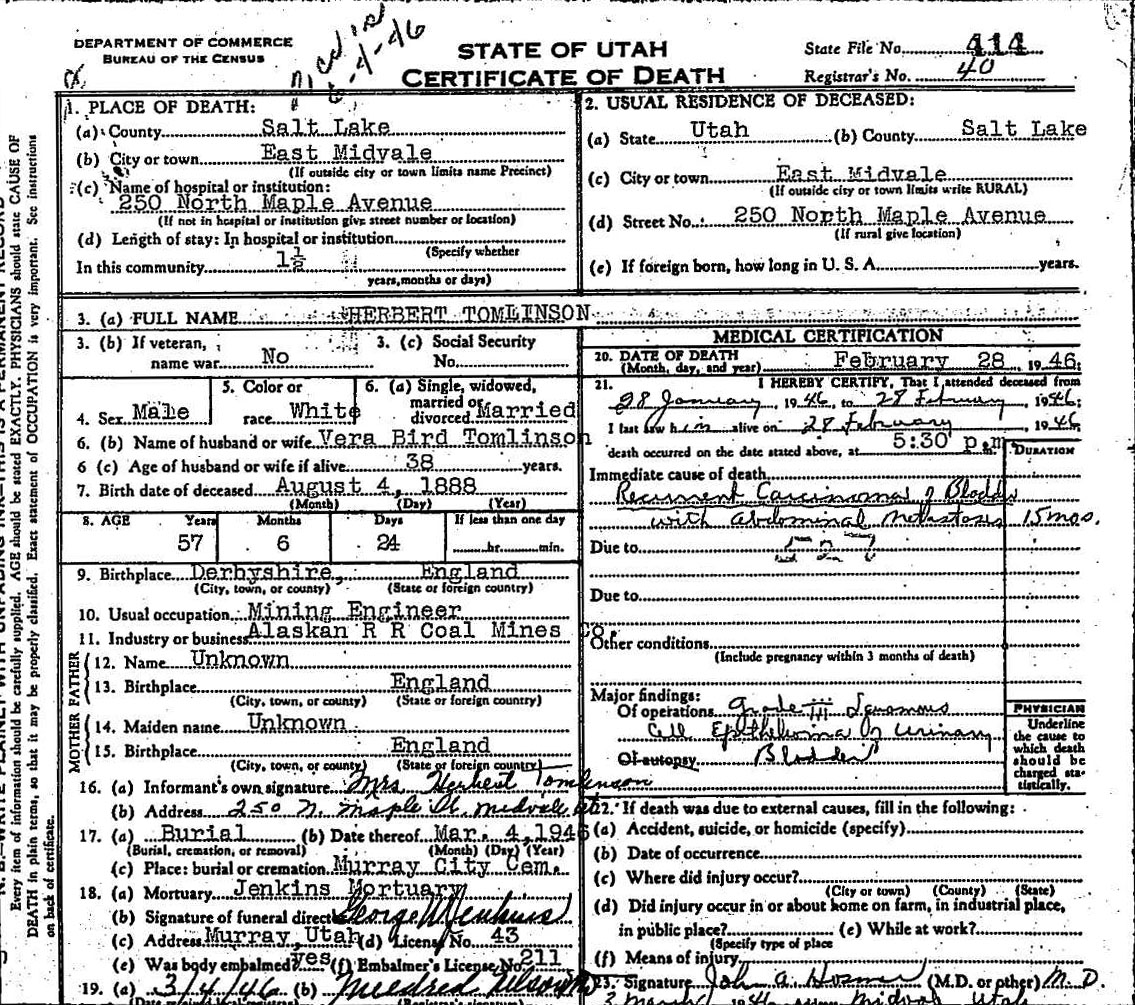 DEPARTMENT OF COMMERCE
BUREAU OF THE CENSUS
4-46
STATE OF UTAH
CERTIFICATE OF DEATH
State File No. 414
Registrar's No. 40
1. PLACE OF DEATH:
(a) County Salt Lake
(b) City or town East Midvale
(If outside city or town limits name Precinct)
(c) Name of hospital or institution:
250 North Maple Avenue
(If not in hospital or institution give street number or location)
(d) Length of stay: In hospital or institution
(Specify whether
In this community 1½
years, months or days)
2. USUAL RESIDENCE OF DECEASED:
(a) State Utah (b) County Salt Lake
(c) City or town East Midvale
(If outside city or town limits write RURAL)
(d) Street No. 250 North Maple Avenue
(If rural give location)
(e) If foreign born, how long in U. S. A. years.
3. (a) FULL NAME HERBERT TOMLINSON
3. (b) If veteran, 3. (c) Social Security
name war No No.
5. Color or 6. (a) Single, widowed,
married or
4. Sex Male race White divorced Married
6. (b) Name of husband or wife Vera Bird Tomlinson
6 (c) Age of husband or wife if alive 38 years.
7. Birth date of deceased August 4, 1888
(Month) (Day) (Year)
8. AGE Years Months Days If less than one day
57 6 24 hr. min.
9. Birthplace Derbyshire, England
(City, town, or county) (State or foreign country)
10. Usual occupation Mining Engineer
11. Industry or business Alaskan R R Coal Mines Co.
FATHER
12. Name Unknown
13. Birthplace England
(City, town, or county) (State or foreign country)
MOTHER
14. Maiden name Unknown
15. Birthplace England
(City, town, or county) (State or foreign country)
16. (a) Informant's own signature Mrs Herbert Tomlinson
(b) Address 250 N. Maple St. Midvale
17. (a) Burial (b) Date thereof Mar. 4, 1946
(Burial, cremation, or removal) (Month) (Day) (Year)
(c) Place: burial or cremation Murray City Cem.
18. (a) Mortuary Jenkins Mortuary
(b) Signature of funeral director George W Jenkins
(c) Address Murray, Utah (d) License No. 43
(e) Was body embalmed? yes (f) Embalmer's License No. 211
19. (a) 3/4/46 (b) Mildred
MEDICAL CERTIFICATION
20. DATE OF DEATH February 28, 1946;
(Month, day, and year)
21. I HEREBY CERTIFY, That I attended deceased from
28 January, 1946, to 28 February, 1946;
I last saw him alive on 28 February, 1946
death occurred on the date stated above, at 5:30 p.m.
DURATION
Immediate cause of death
Recurrent Carcinoma of Bladder
with Abdominal Metastosis 15 mos.
Due to 527
Due to
Other conditions
(Include pregnancy within 3 months of death)
Major findings:
Of operations Grade III Squamous
Cell Epithelioma of Urinary
Of autopsy Bladder
PHYSICIAN
Underline
the cause to
which death
should be
charged sta-
tistically.
22. If death was due to external causes, fill in the following:
(a) Accident, suicide, or homicide (specify)
(b) Date of occurrence
(c) Where did injury occur?
(City or town) (County) (State)
(d) Did injury occur in or about home on farm, in industrial place,
in public place? (e) While at work?
(Specify type of place
(f) Means of injury
23. Signature John A. Hosmer (M.D. or other) M.D.
Every item of information should be carefully supplied. AGE should be stated EXACTLY. PHYSICIANS should state CAUSE OF
DEATH in plain terms, so that it may be properly classified. Exact statement of OCCUPATION is very important. See instructions
on back of certificate.